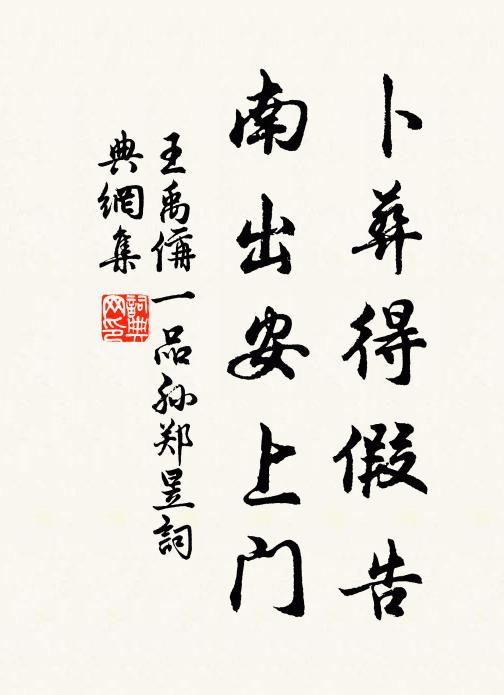 卜葬得假告
南出安上门
王禹偁一品孙郑昱詞
典網集
詞典网印